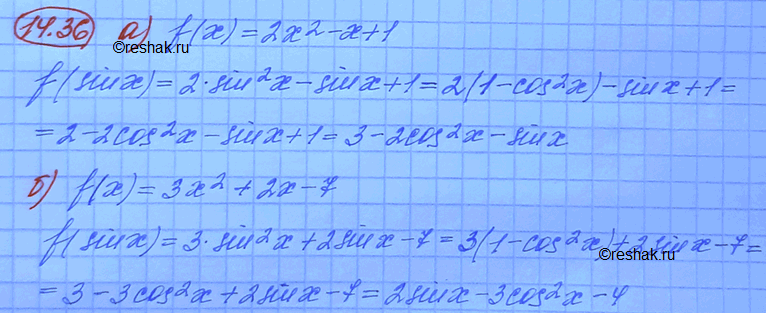 14.36 а) f(x) = 2x² - x + 1
©reshak.ru
f(sinx) = 2·sin²x - sinx + 1 = 2(1 - cos²x) - sinx + 1 =
= 2 - 2cos²x - sinx + 1 = 3 - 2cos²x - sinx
б) f(x) = 3x² + 2x - 7
©reshak.ru
f(sinx) = 3·sin²x + 2sinx - 7 = 3(1 - cos²x) + 2sinx - 7 =
= 3 - 3cos²x + 2sinx - 7 = 2sinx - 3cos²x - 4